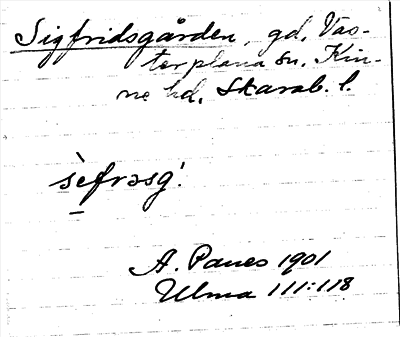 Sigfridsgården, gd, Väs-
terplana sn. Kin-
ne hd. Skarab. l.
sèfrəsg.
A. Panes 1901
Ulma 111:118